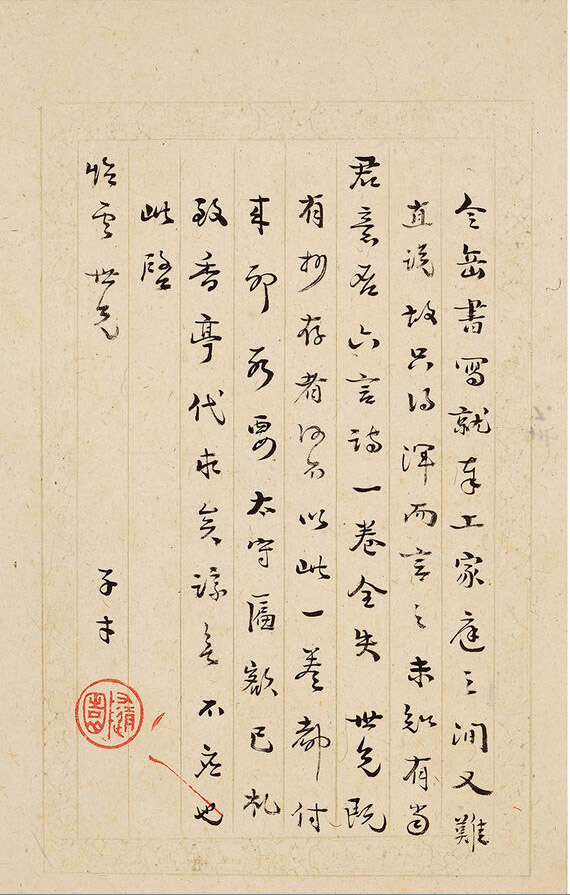 令岳書寫就奉上家庭之間又難
直說故只得渾而言之未知有當
君意否六言詩一卷全失世兄既
有抄存者何不以此一卷都付
來印所要太守匾額已札
致香亭代求矣諒無不应也
此啓
怡雲世兄
子才
隨園